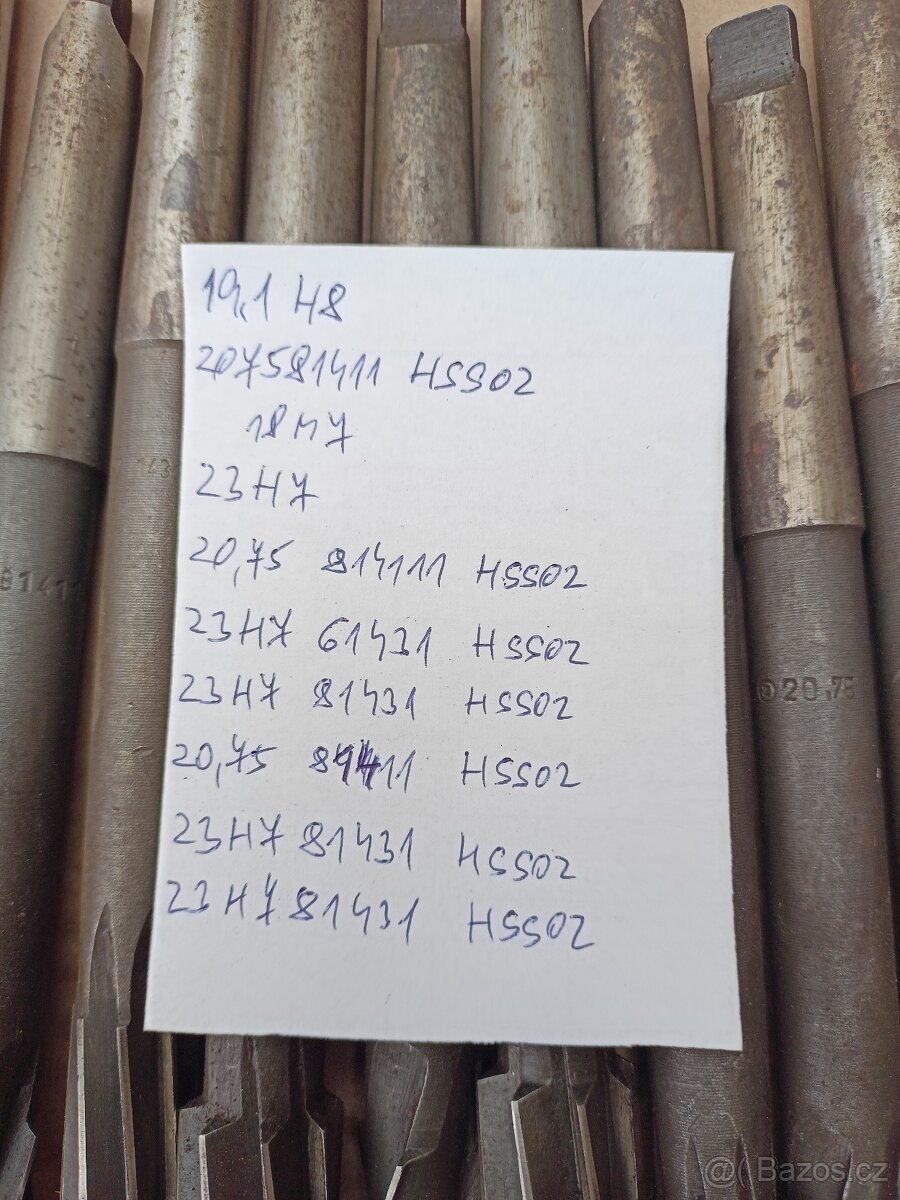 19,1 H8
207581411 HSSO2
18 H7
23 H7
20,75 814111 HSSO2
23H7 61431 HSSO2
23 H7 81431 HSSO2
20,75 81411 HSSO2
23H7 81431 HSSO2
23 H7 81431 HSSO2
143
8141
20,75
@( Bazos.cz